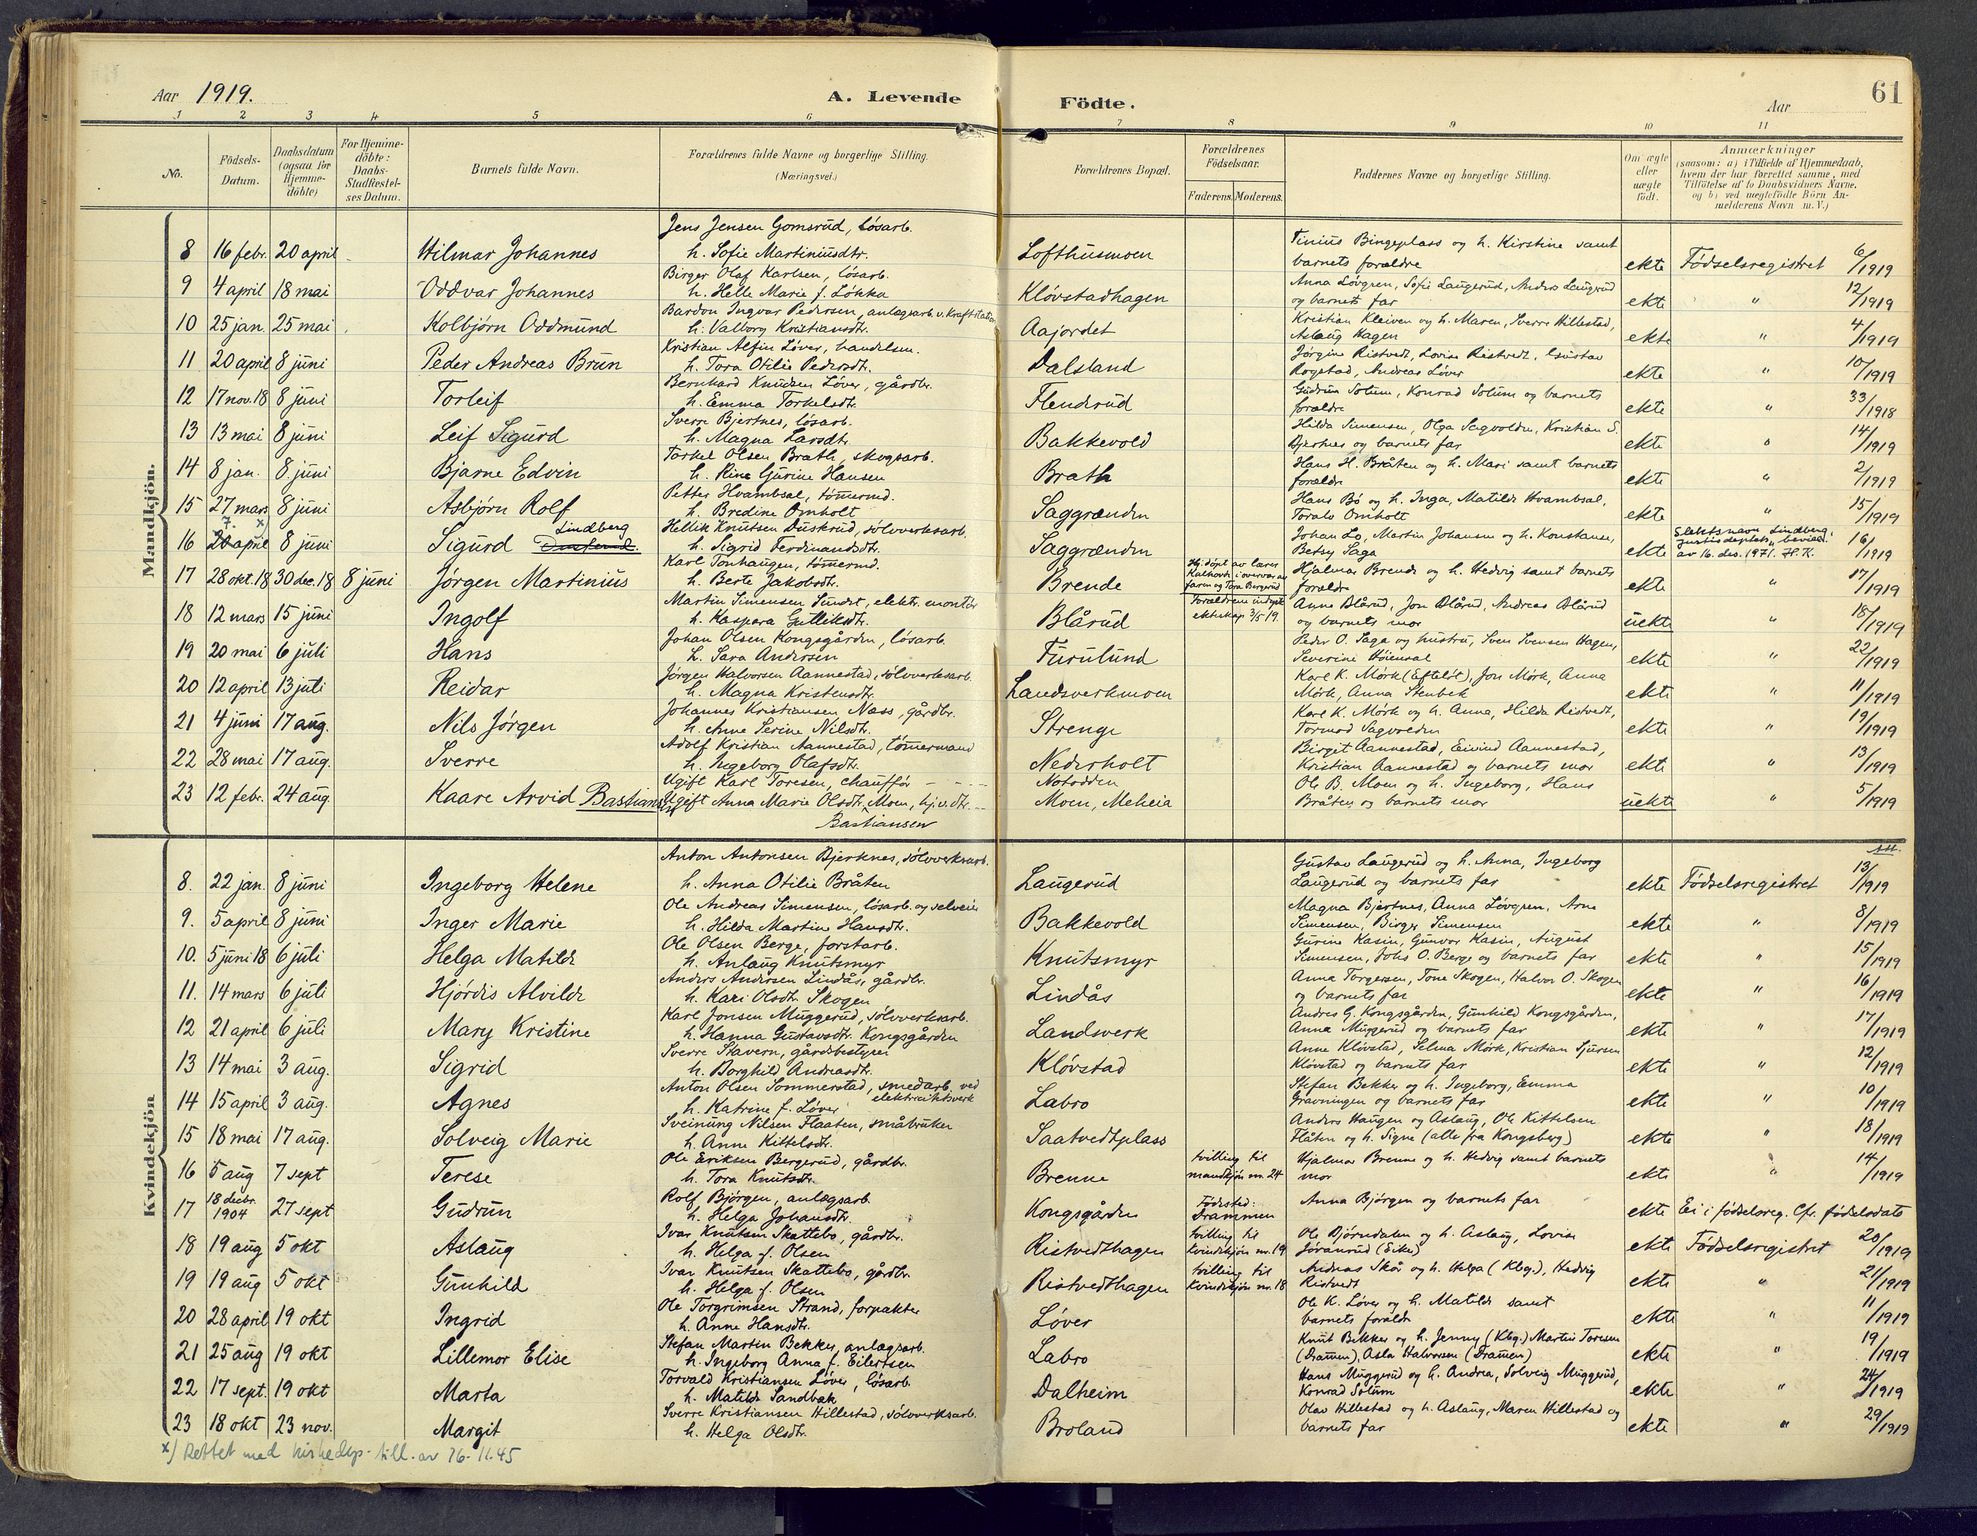 Aar 1919. A. Levende Födte. Aar 61
1 2 3 4 5 6 7 8 9 10 11
No. Födsels-Datum. Daabsdatum (ogsaa for Hjemmedöbte) For Hjemmedöbte: Daabs-Stadfæstelses Datum. Barnets fulde Navn. Forældrenes fulde Navne og borgerlige Stilling. (Næringsvei.) Forældrenes Bopæl. Forældrenes Födselsaar. Faderens. Moderens. Faddernes Navne og borgerlige Stilling. Om ægte eller uægte födt. Anmærkninger
(saasom: a) i Tilfælde af Hjemmedaab, hvem der har forrettet samme, med Tilföielse af to Daabsvidners Navne, og b) ved uegtefödte Börn Anmelderens Navn m. V.)
Mandkjön.
Jens Jensen Gomsrud, løsarb. Tinius Bingeplass og h. Kirstine samt
8 16 febr. 20 april Hilmar Johannes h. Sofie Martiniusdtr. Lofthusmoen barnets forældre ekte Fødselsregistret 6/1919
Birger Olaf Karlsen, løsarb. Anna Løvgren, Sofie Laugerud, Anders Laugerud
9 4 april 18 mai Oddvar Johannes h. Helle Marie f. Løkka Kløvstadhagen og barnets far ekte " 12/1919
Bardon Ingvar Pedersen, anlagsarb. v. Kraftstation Kristian Kleiven og h. Maren, Sverre Hillestad,
10 25 jan. 25 mai Kolbjørn Oddmund h. Valborg Kristiansdtr. Aajordet Aslaug Hagen ekte " 4/1919
Kristian Alfin Løver, handelsm. Jørgine Ristvedt, Lovise Ristvedt, Gustav
11 20 april 8 juni Peder Andreas Brun h. Tora Otilie Pedersdtr. Dalsland Rogstad, Andreas Løver ekte " 10/1919
Bernhard Knudsen Løver, gårdbr. Gudrun Solum, Konrad Solum og barnets
12 17 nov. 18 8 juni Torleif h. Emma Torkelsdtr. Flendrud forældre ekte " 33/1918
Sverre Bjertnes, løsarb. Hilda Simensen, Olga Sagvolden, Kristian S.
13 13 mai 8 juni Leif Sigurd h. Magna Larsdtr. Bakkevold Bjertnes og barnets far ekte " 14/1919
Torkel Olsen Brath, skogsarb. Hans H. Bråten og h. Mari samt barnets
14 8 jan. 8. juni Bjarne Edvin h. Kine Gurine Hansen Brath forældre ekte " 2/1919
Petter Hvambsal, tømermd. Hans Bø og h. Inga, Matilde Hvambsal,
15 27 mars 8 juni Asbjørn Rolf h. Bredine Omholt Saggrænden Torals Omholt ekte " 15/1919
7. x) Lindberg Hellik Knutsen Duskrud, sølvverksarb. Johan Lo, Martin Johansen og h. Konstanse, Slektsnavn Lindberg
16 20 april 8 juni Sigurd h. Sigrid Ferdinandsdtr. Saggrænden Betsy Saga ekte justisdeptets bevill. av 16. des. 1971. H.K. 16/1919
Karl Tonhaugen, tømermd. Hj. døpt av lærer Hjalmar Brende og h. Hedvig samt barnets
17 28 okt. 18 30 dec. 18 8 juni Jørgen Martinius h. Berte Jakobsdtr. Brende faren og Tora Bergerud forældre ekte " 17/1919
Martin Simensen Sundet, elektr. montør Forældrene indgik Anne Blårud, Jon Blårud, Andreas Blårud
18 12 mars 15 juni Ingolf h. Kaspara Gulliksdtr. Blårud ekteskap 3/5 19. og barnets mor uekte " 18/1919
Johan Olsen Kongsgården, løsarb. Peder O. Saga og hustru, Sven Svensen Hagen,
19 20 mai 6 juli Hans h. Sara Andersen Furulund Severine Høiensal ekte " 22/1919
Jørgen Halvorsen Aannestad, sølvverksarb. Karl K. Mørk (Efteløt), Jon Mørk, Anna
20 12 april 13 juli Reidar h. Magna Kristensdtr. Landsverkmoen Mørk, Anna Stenbek ekte " 11/1919
Johannes Kristiansen Næss, gårdbr. Karl K. Mørk og h. Anna, Hilda Ristvedt,
21 4 juni 17 aug. Nils Jørgen h. Anne Serine Nilsdtr. Strenge Tormod Sagvolden ekte " 19/1919
Adolf Kristian Aannestad, tømermand Birgit Aannestad, Eivind Aannestad,
22 28 mai 17 aug. Sverre h. Ingeborg Olafsdtr. Nederholt Kristian Aannestad og barnets mor ekte " 13/1919
Ugift Karl Toresen, chauffør Notodden Ole B. Moen og h. Ingeborg, Hans
23 12 febr. 24 aug. Kaare Arvid Bastiansen Ugift Anna Marie Olsdtr. Moen, hj.v.dtr. Moen, Meheia Bråten og barnets mor uekte " 5/1919
Bastiansen
Kvindekjön
Anton Antonsen Bjerknes, sølvverksarb. Gustav Laugerud og h. Anna, Ingeborg
8. 22 jan. 8 juni Ingeborg Helene h. Anna Otilie Bråten Laugerud Laugerud og barnets far ekte Fødselsregistret 13/1919
Ole Andreas Simensen, løsarb. og selveier Magna Bjertnes, Anna Løvgren, Arne
9. 5 april 8 juni Inger Marie h. Hilda Martine Hansdtr. Bakkevold Simensen, Birger Simensen ekte " 8/1919
Ole Olsen Berge, forstarb. Gurine Kasin, Gunvor Kasin, August
10. 5 juni 18 6 juli Helga Matilde h. Anlaug Knutsmyr Knutsmyr Simensen, Johs O. Berge og barnets far ekte " 15/1919
Anders Andersen Lindås, gårdbr. Anna Torgersen, Tone Skogen, Halvor O. Skogen
11. 14 mars 6 juli Hjørdis Alvilde h. Kari Olsdtr. Skogen Lindås og barnets far ekte " 16/1919
Karl Jonsen Muggerud, sølvverksarb. Andres G. Kongsgården, Gunhild Kongsgården,
12 21 april 6 juli Mary Kristine h. Hanna Gustavsdtr. Kongsgården Landsverk Anna Muggerud og barnets far ekte " 17/1919
Sverre Stavern, gårdsbestyrer Anne Kløvstad, Selma Mørk, Kristian Sjursen
13 14 mai 3 aug. Sigrid h. Borghild Andreasdtr. Kløvstad Kløvstad og barnets far ekte " 12/1919
Anton Olsen Sommerstad, smedarb. ved elektricitetsverk Stefan Bekker og h. Ingeborg, Emma
14 15 april 3 aug. Agnes h. Katrine f. Løver Labro Gravningen og barnets far ekte " 10/1919
Sveinung Nilsen Flaaten, småbruker Anders Haugen og Aslaug, Ole Kittelsen
15 18 mai 17 aug. Solveig Marie h. Anne Kittelsdtr. Saatvedtplass Flåten og h. Signe (alle fra Kongsberg) ekte " 18/1919
Ole Eriksen Bergerud, gårdbr. tvilling til Hjalmar Brenne og h. Hedvig samt barnets
16 5 aug 7 sept Terese h. Tora Knutsdtr. Brenne mandkjøn nr. 24 mor ekte " 14/1919
18 decbr. Rolf Bjørgen, anlagsarb Fødested:
17 1904 27 sept Gudrun h. Helga Johansdtr. Kongsgården Drammen Anna Bjørgen og barnets far ekte Ei i fødselsreg. Cfr. fødselsdato
Ivar Knutsen Skattebo, gårdbr. tvilling til Ole Bjørndalen og h. Aslaug, Lovise
18 19 aug 5 okt Aslaug h. Helga f. Olsen Ristvedthagen kvindekjøn nr. 19 Jøvanrud (Eiker) ekte Fødselsregistret 20/1919
Ivar Knutsen Skattebo, gårdbr. tvilling til Andreas Skår og h. Helga (Kbg.), Hedvig
19 19 aug 5 okt Gunhild h. Helga f. Olsen Ristvedthagen kvindekjøn nr. 18 Ristvedt ekte " 21/1919
Ole Torgrimsen Strand, forpakter Ole K. Løver og h. Matilde samt
20 28 april 19 okt Ingrid h. Anne Hansdtr. Løver barnets foreldre ekte " 11/1919
Stefan Martin Bekker, anlagsarb. Knut Bekker og h. Jenny (Kbg.) Martin Toresen
21 25 aug 19 okt Lillemor Elise h. Ingeborg Anna f. Eilertsen Labro (Drammen), Asla Halvorsen (Drammen) ekte " 19/1919
Torvald Kristiansen Løver, løsarb. Hans Muggerud og h. Andrea, Solveig Muggerud,
22 17 sept. 19 okt Marta h. Matilde Sandbæk Dalheim Konrad Solum ekte " 24/1919
Sverre Kristiansen Hillestad, sølvverksarb. Olav Hillestad og h. Aslaug, Maren Hillestad og
23 18 okt 23 nov. Margit h. Helga Olsdtr. Broland barnets far ekte " 29/1919
x) Rettet med kirkedep. till. av 16.11.45